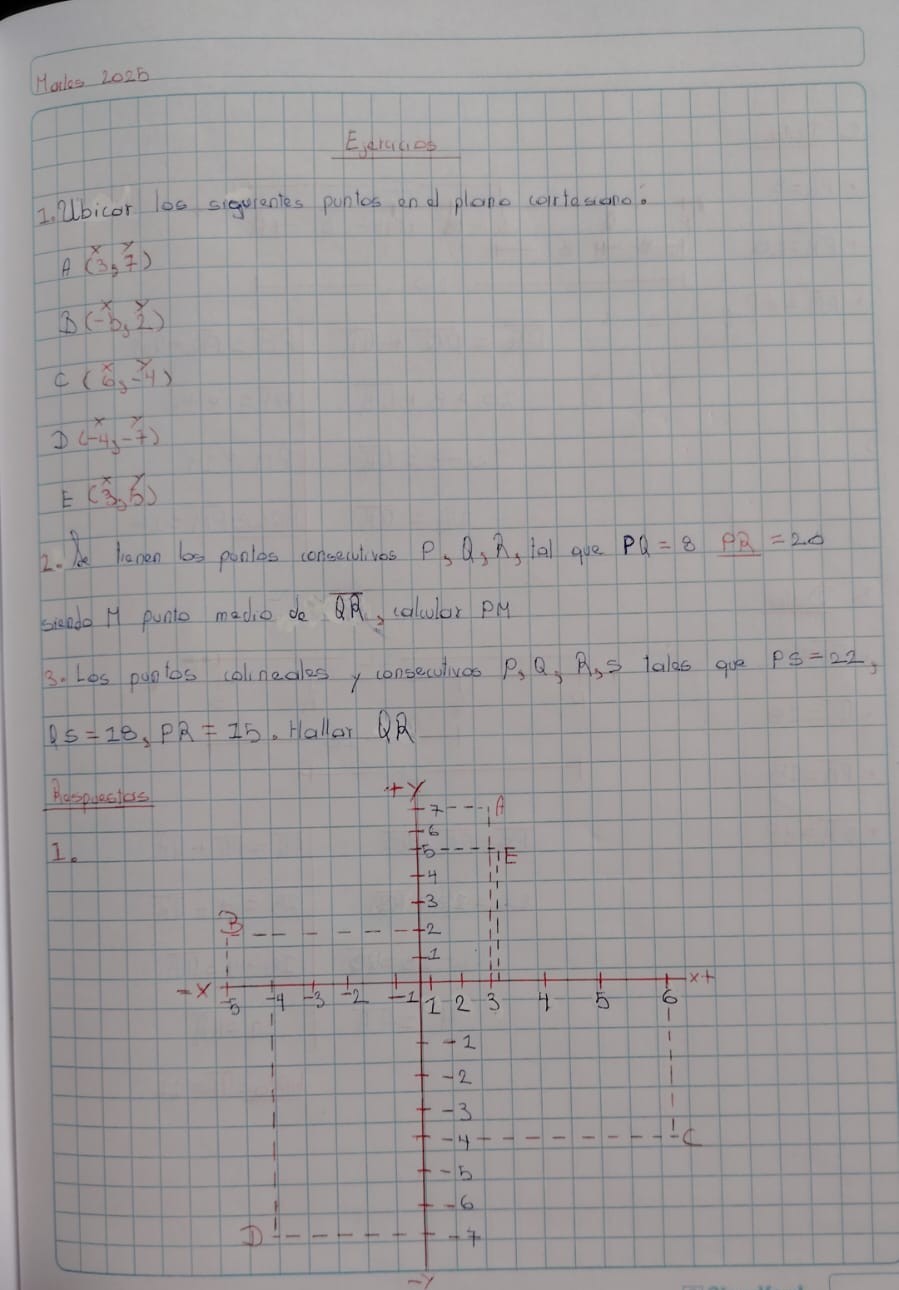 Martes 2025
Ejercicios
1. Ubicar los siguientes puntos en el plano cartesiano:
x y
A (3, 7)
x y
B (-5, 2)
x y
C (6, -4)
x y
D (-4, -7)
x y
E (3, 5)
2. Se tienen los puntos consecutivos P, Q, R, tal que PQ = 8 PR = 20
siendo M punto medio de QR, calcular PM
3. Los puntos colineales y consecutivos P, Q, R, S tales que PS = 22,
QS = 18, PR = 15. Hallar QR
Respuestas
+Y
7 A
6
1. 5 E
4
3
B 2
1
-X x+
-5 -4 -3 -2 -1 1 2 3 4 5 6
-1
-2
-3
-4 C
-5
-6
D -7
-Y